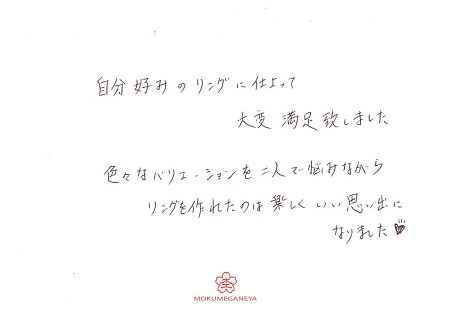 自分好みのリングに仕上って
大変 満足致しました
色々なバリエーションを二人で悩みながら
リングを作れたのは楽しくいい思い出に
なりました
MOKUMEGANEYA